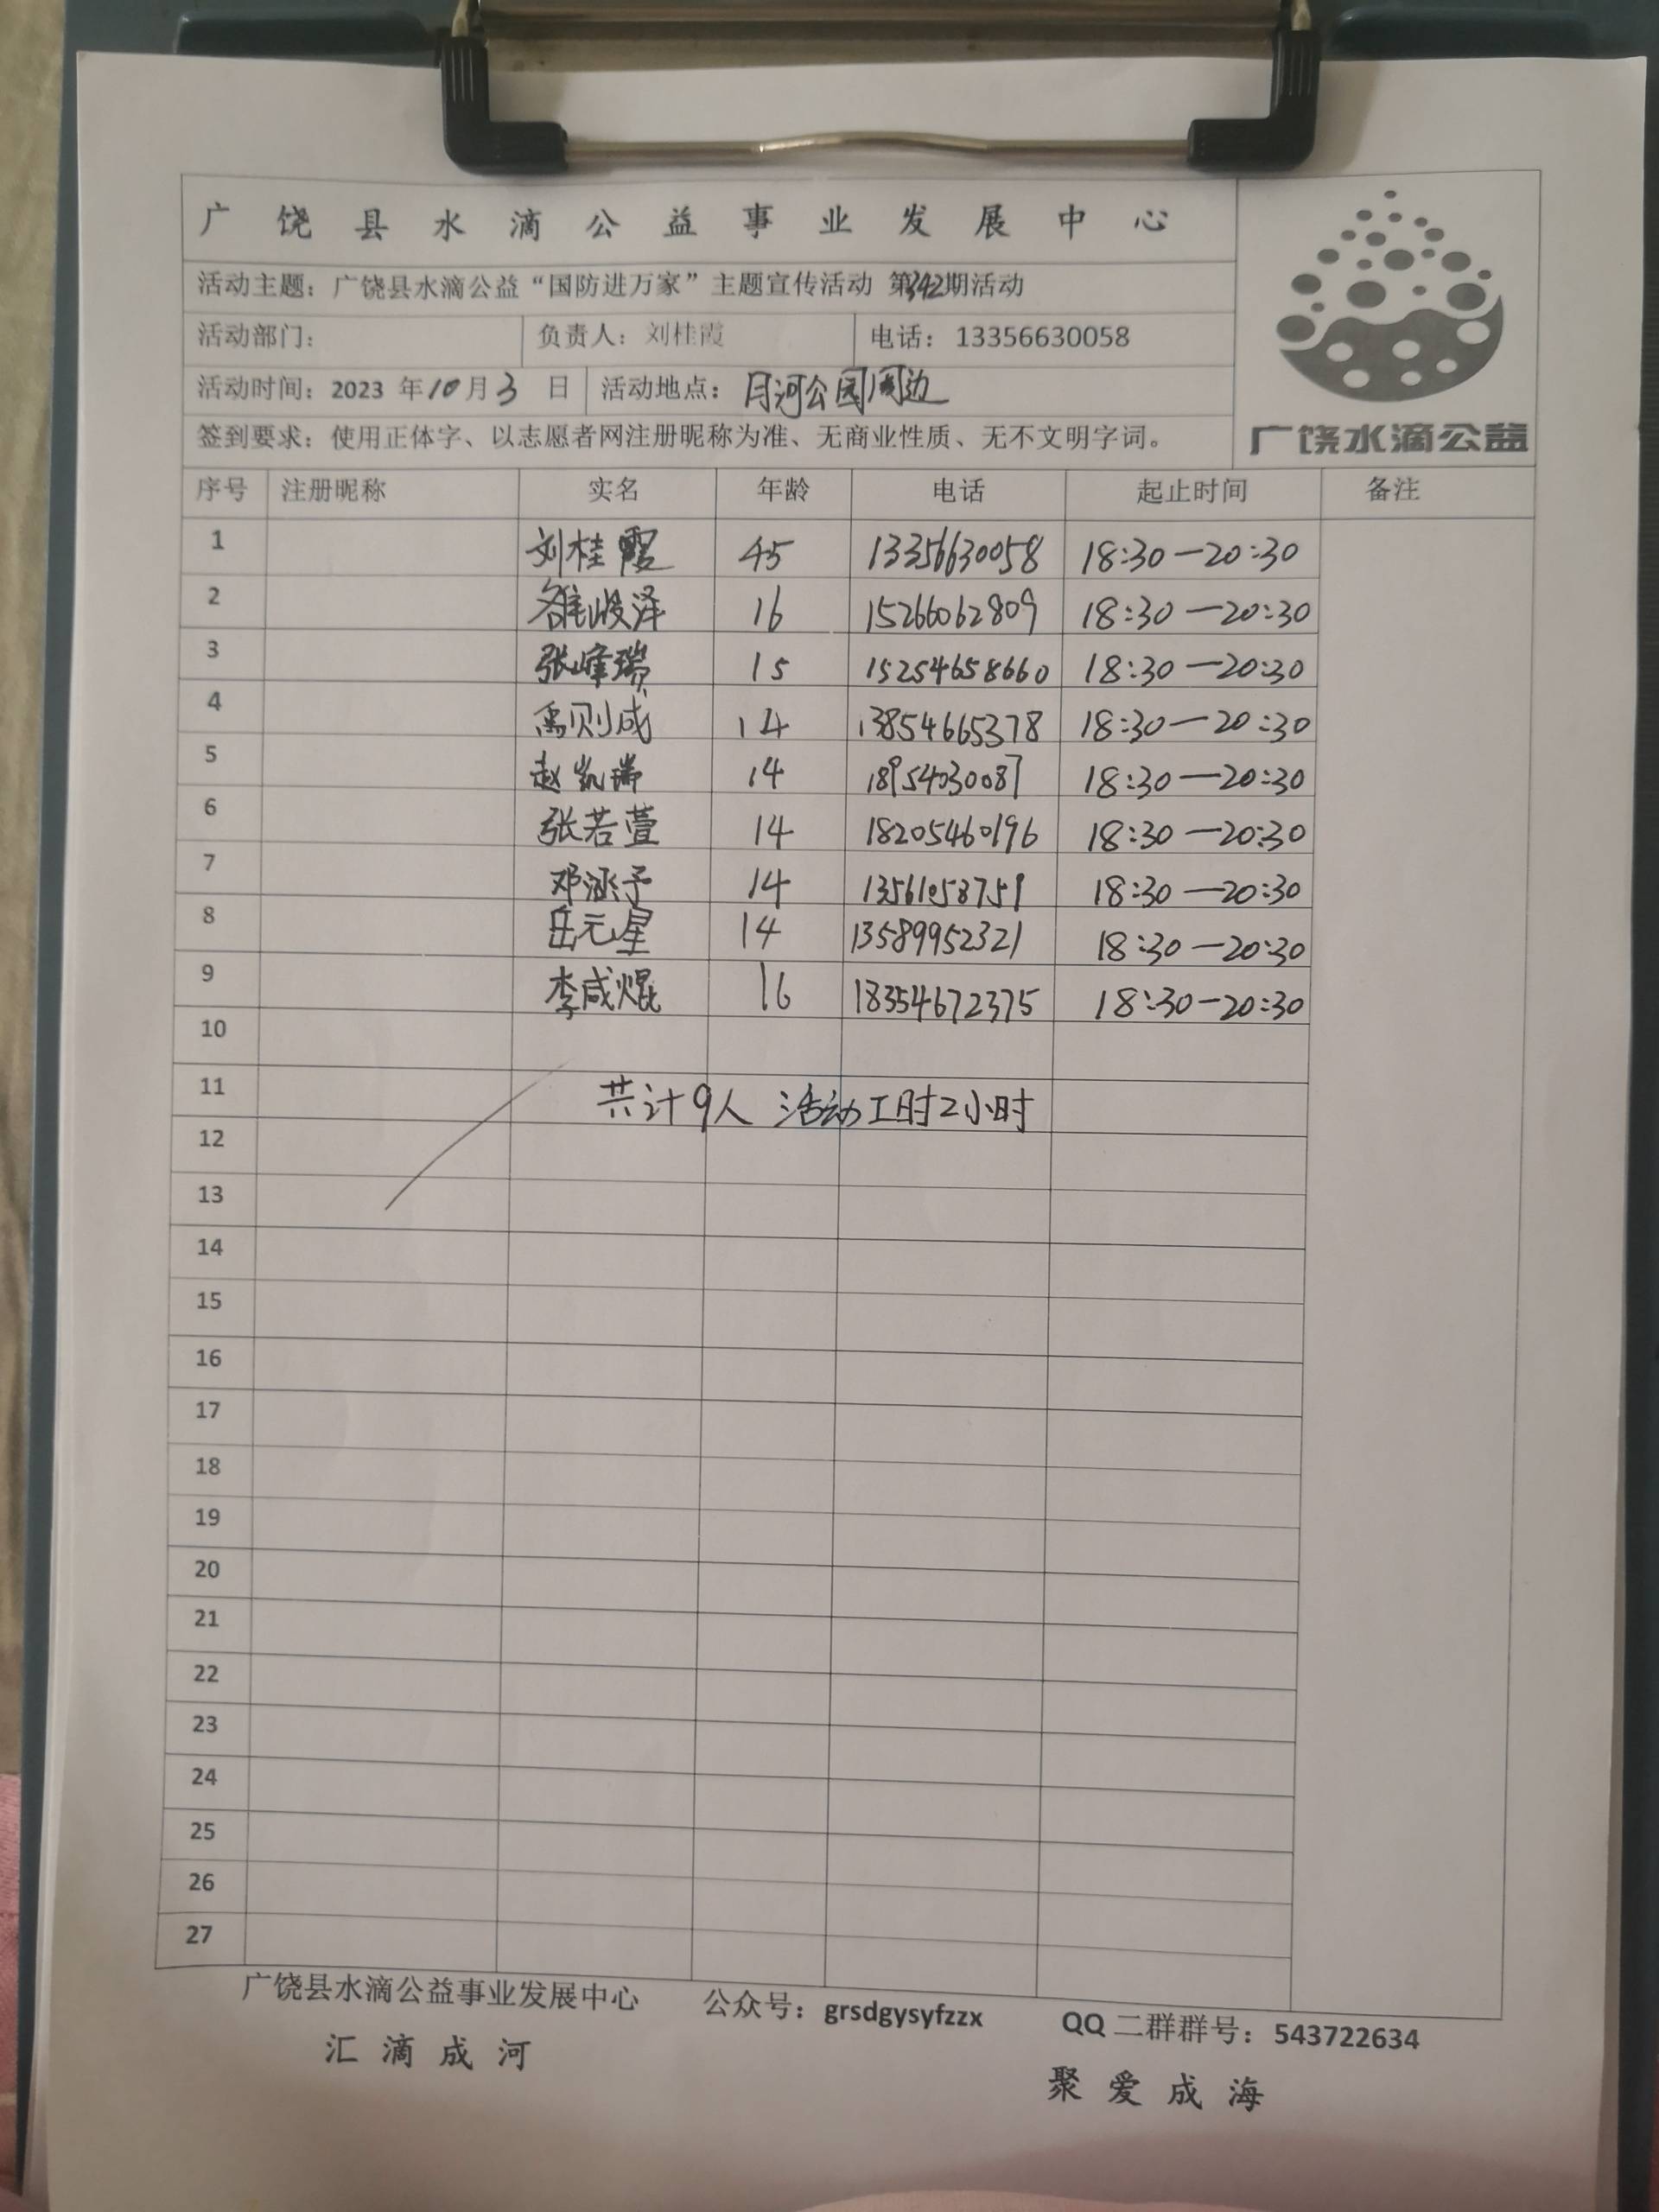 广饶县水滴公益事业发展中心
活动主题：广饶县水滴公益“国防进万家”主题宣传活动 第342期活动
活动部门： 负责人：刘桂霞 电话：13356630058
活动时间：2023 年10月3 日 活动地点：月河公园周边
签到要求：使用正体字、以志愿者网注册昵称为准、无商业性质、无不文明字词。
广饶水滴公益
序号 注册昵称 实名 年龄 电话 起止时间 备注
1 刘桂霞 45 13356630058 18:30—20:30
2 雒峻泽 16 15266062809 18:30—20:30
3 张峰瑞 15 15254658660 18:30—20:30
4 禹则成 14 13854665378 18:30—20:30
5 赵凯瑞 14 18954030087 18:30—20:30
6 张若萱 14 18205460196 18:30—20:30
7 邓涵予 14 13561058759 18:30—20:30
8 岳元星 14 13589952321 18:30—20:30
9 李咸焜 16 18354672375 18:30—20:30
10
11 共计9人 活动工时2小时
12
13
14
15
16
17
18
19
20
21
22
23
24
25
26
27
广饶县水滴公益事业发展中心 公众号：grsdgysyfzzx QQ 二群群号：543722634
汇滴成河 聚爱成海